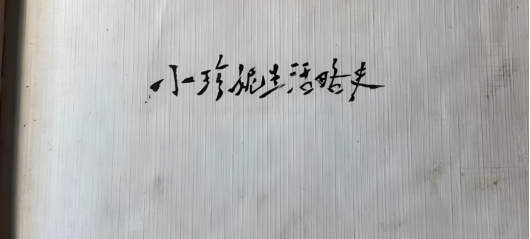 小珍妮生活略史